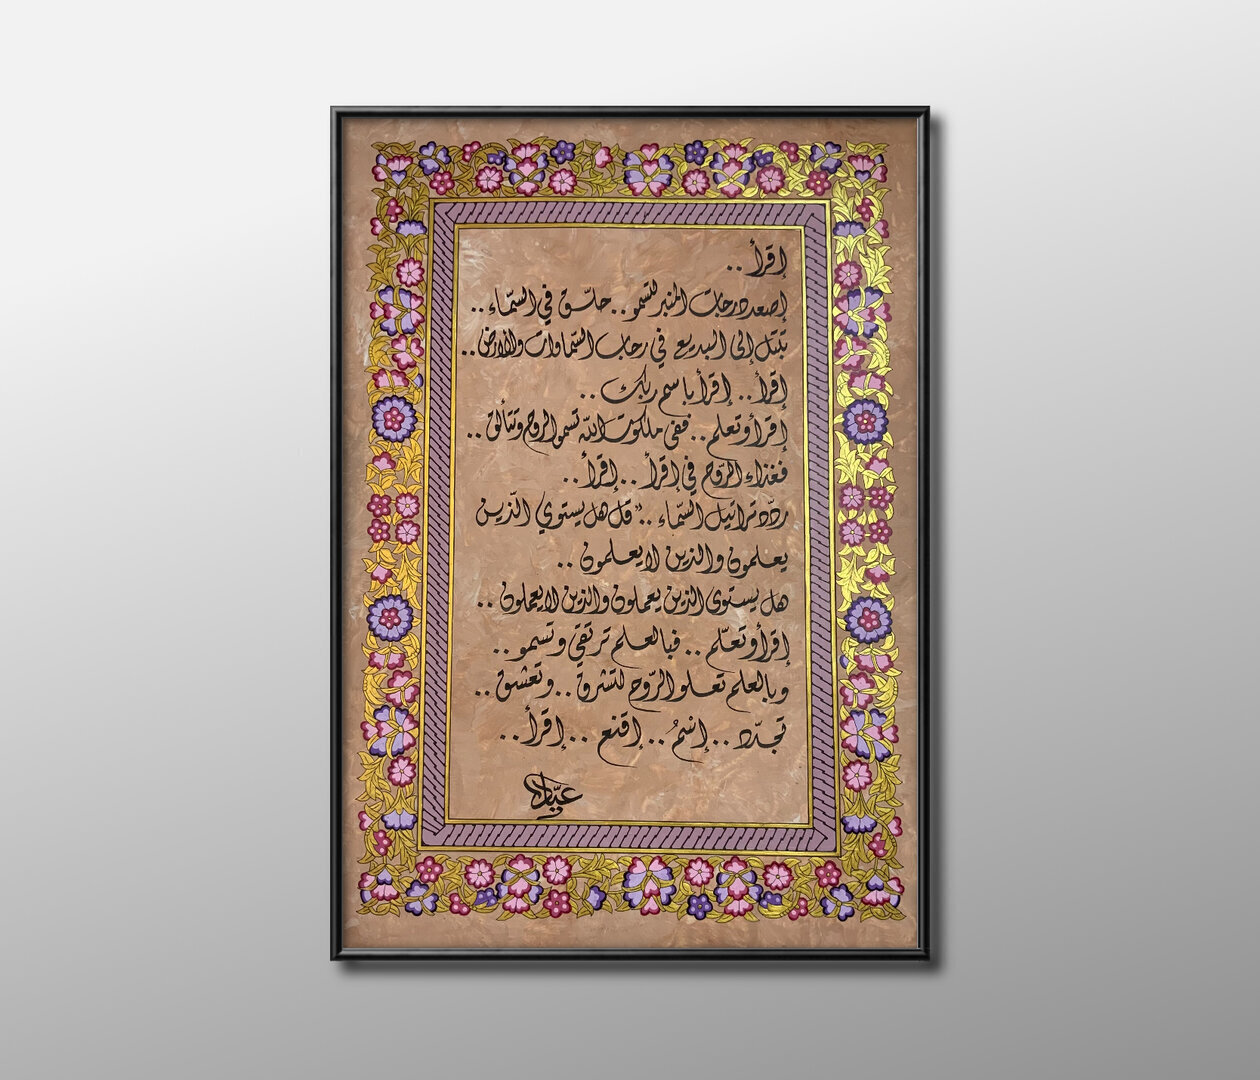 إقرأ ..
إصعد درجات المنبر لتسمو .. حلّق في السّماء ..
تبتل إلى البديع في رحاب السّماوات والأرض ..
إقرأ .. إقرأ باسم ربك ..
إقرأ وتعلم .. ففي ملكوت الله تسمو الروح وتتألق ..
فغذاء الرّوح في إقرأ .. إقرأ ..
ردّد تراتيل السّماء .. " قل هل يستوي الّذين
يعلمون والذين لا يعلمون ..
هل يستوى الذين يعملون والذين لا يعملون ..
إقرأ وتعلّم .. فبالعلم ترتقي وتسمو ..
وبالعلم تعلو الرّوح لتشرق .. وتعشق ..
تجدّد .. إسْمُ .. إقنع .. إقرأ ..